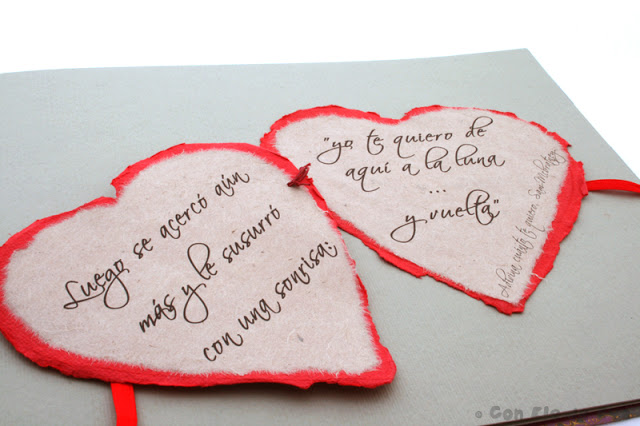 Luego se acercó aún
más y le susurró
con una sonrisa:
"yo te quiero de
aquí a la luna
...
y vuelta"
Adivina cuánto te quiero, Sam McBratney
© Con